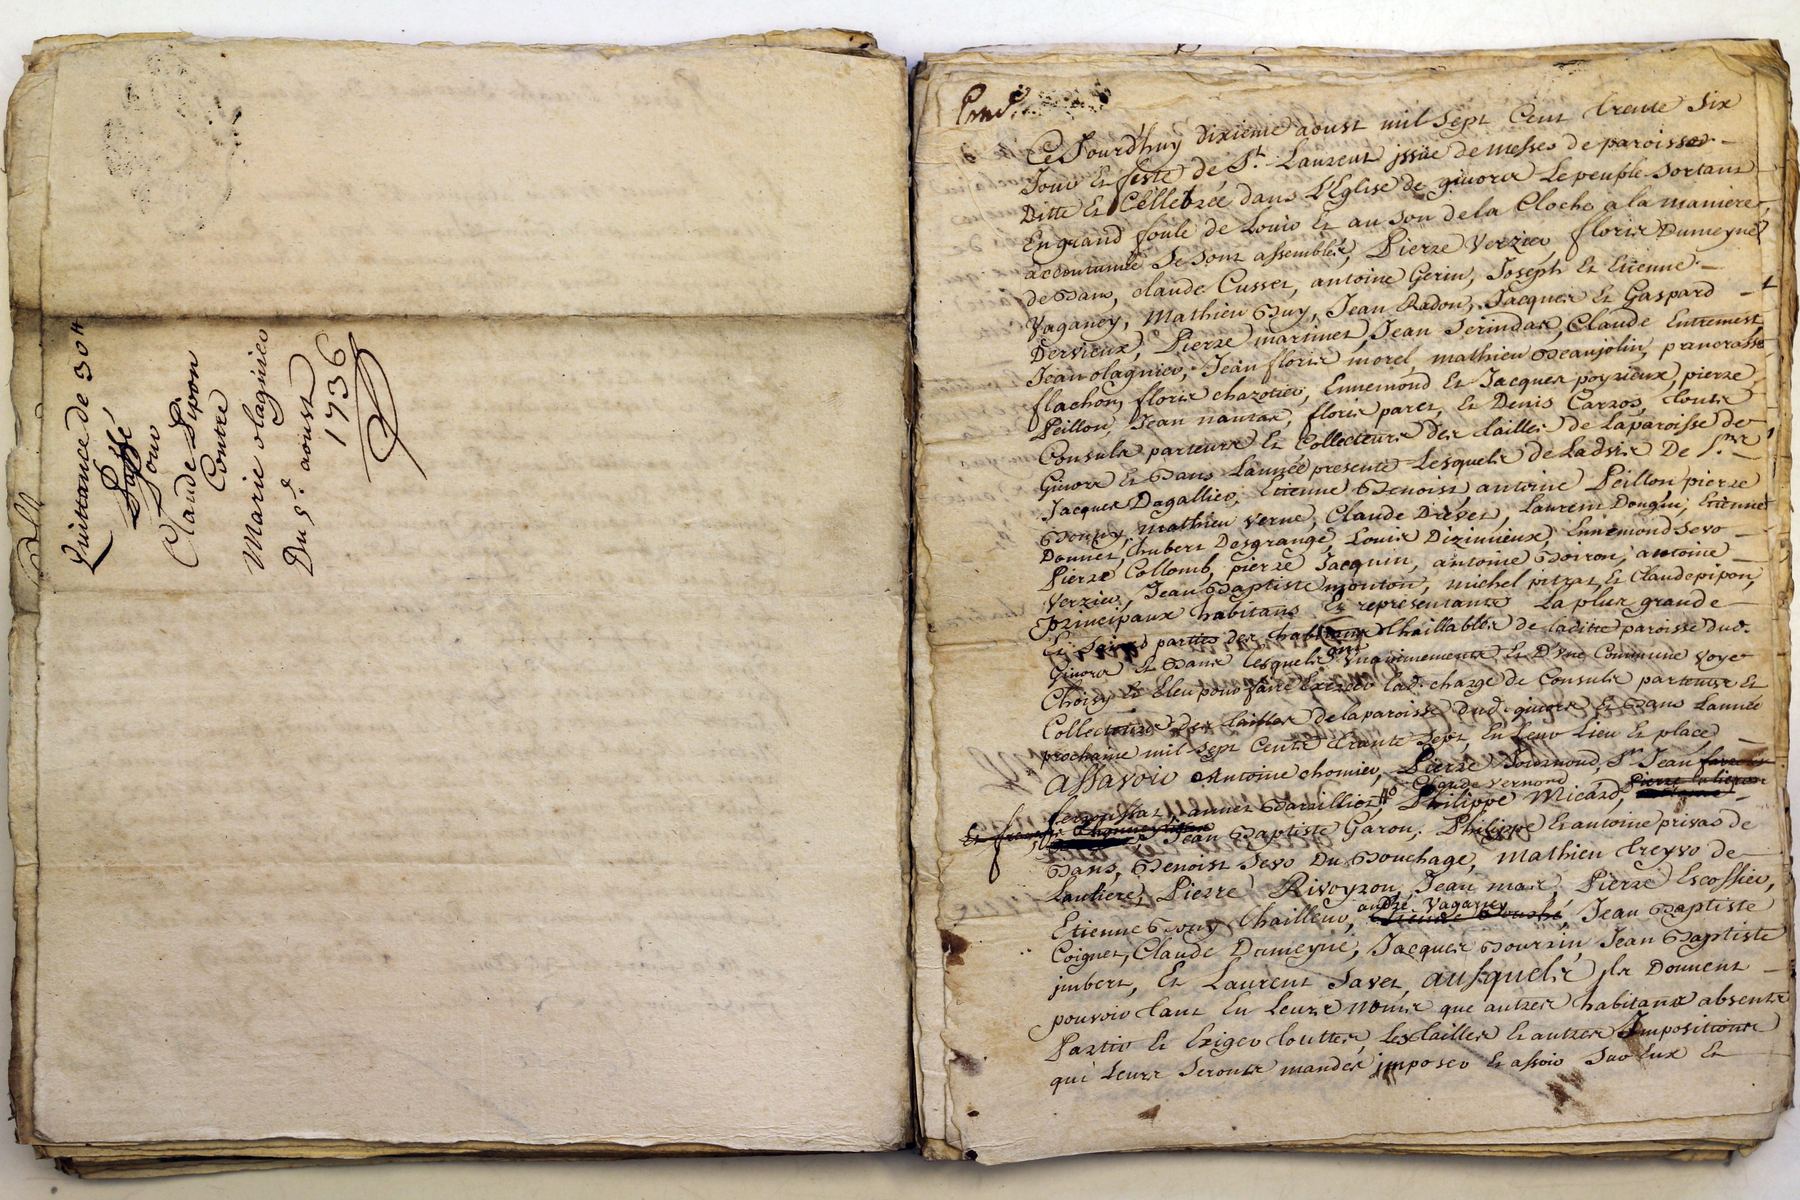 Quittance de 30 ₶
Passé
Pour
Claude Pipon
Contre
Marie olagnier
Du 5e aoust
1736
Ce Jourd'huy dixieme aoust mil sept Cent trente six
Jour Et feste de St. Laurent jssue de messes de paroisses
Ditte Et Cellebrée dans L'Eglise de givors Le peuple sortant
En grand foule de Louir Et au son de la Cloche a la maniere
accoutumée se sont assemblés, Pierre Verzier, floris Dumeyne
de Bans, claude Cusset, antoine Gerin, Joseph Et Etienne
Vaganey, Mathieu Buy, Jean Radon, Jacques Et Gaspard
Dervieux, Pierre martinet, Jean Serindat, Claude Entremest
Jean olagnier, Jean floris morel, mathieu Beaujolin, pancrasse
flachon, floris chazotier, Ennemond Et Jacques poyzieux, pierre
Peillon Jean nantas, floris paret, Et Denis Carros, touts
Consuls parteurs Et Collecteurs des tailles de La paroisse de
Givors Et Bans Lannée presente Lesquels de Ladvis De Srs
Jacques Dagallier, Etienne Benoist, antoine Peillon pierre
Bonny, mathieu Verne, Claude Drevet, Laurent Dongui, Etienne
Donnet, hubert Desgrange, Louis Dizimieux, Ennemond Sevo
Pierre Collomb, pierre Jacquin, antoine Boiron, antoine
Verzier, Jean Baptiste mouton, michel pitrat, Et Claude pipon,
principaux habitans Et representants La plus grande
Et saine parties des habitans thaillables de laditte paroisse dud.
Givors Et Bans lesquels ont Unanimements Et D'une Commune Voye
Choisy Et Eleu pour faire Exercer lad. charge de Consuls parteurs Et
Collecteurs des tailles de la paroisse dud. givors Et Bans Lannée
prochaine mil sept Cents trante sept, En Leur Lieu Et place
assavoir Antoine chomier, Pierre Tournoud, Sr Jean
Claude Vernond
annet Baraillier, Philippe Micard,
Jean Baptiste Garon, Philippe Et antoine privas de
Bans, Benoist Sevo Du Bouchage, Mathieu treyvo de
Lauliere, Pierre Rivoyron, Jean mas, Pierre Escossier,
andré Vaganey
Etienne Bony thailleur, Jean Baptiste
Coignet, Claude Dumeyne, Jacques Bourrin, Jean Baptiste
jmbert, Et Laurent Javet, ausquels jls Donnent
pouvoir tant En Leurs noms que autres habitans absents
Partir Et Exiger touttes Les tailles Et autres Impositions
qui Leurs seronts mandés jmposer Et assoir sur Eux Et